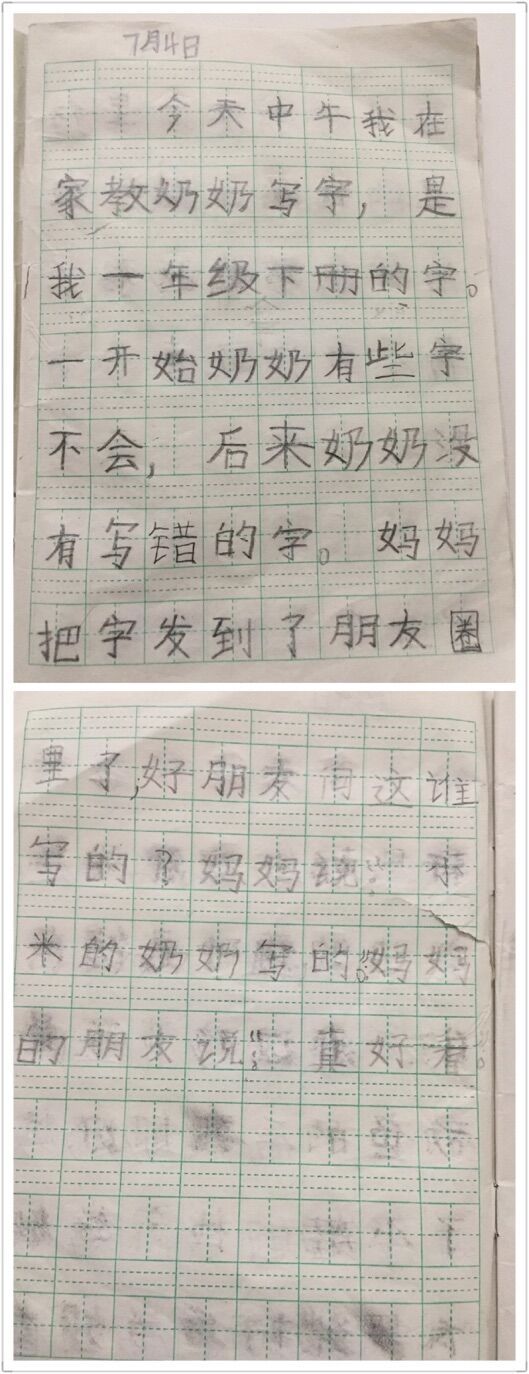 7月4日
今天中午我在
家教奶奶写字，是
我一年级下册的字。
一开始奶奶有些字
不会，后来奶奶没
有写错的字。妈妈
把字发到了朋友圈
里了，好朋友问这谁
写的？妈妈说：“小
米的奶奶写的。”妈妈
的朋友说：“真好看。